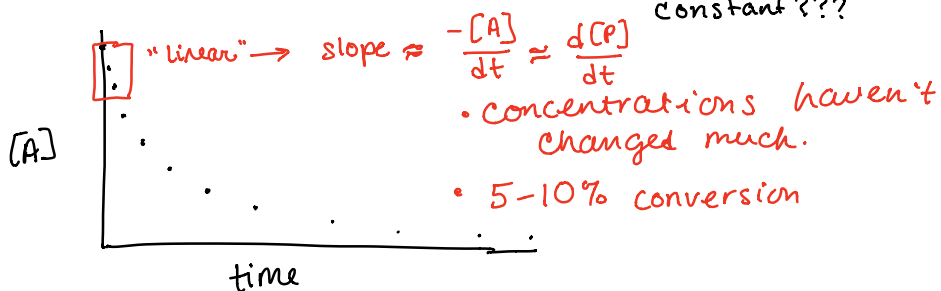 constant???
"linear" → slope ≈ -[A]/dt ≈ d[P]/dt
• concentrations haven't
changed much.
[A]
• 5-10% conversion
time